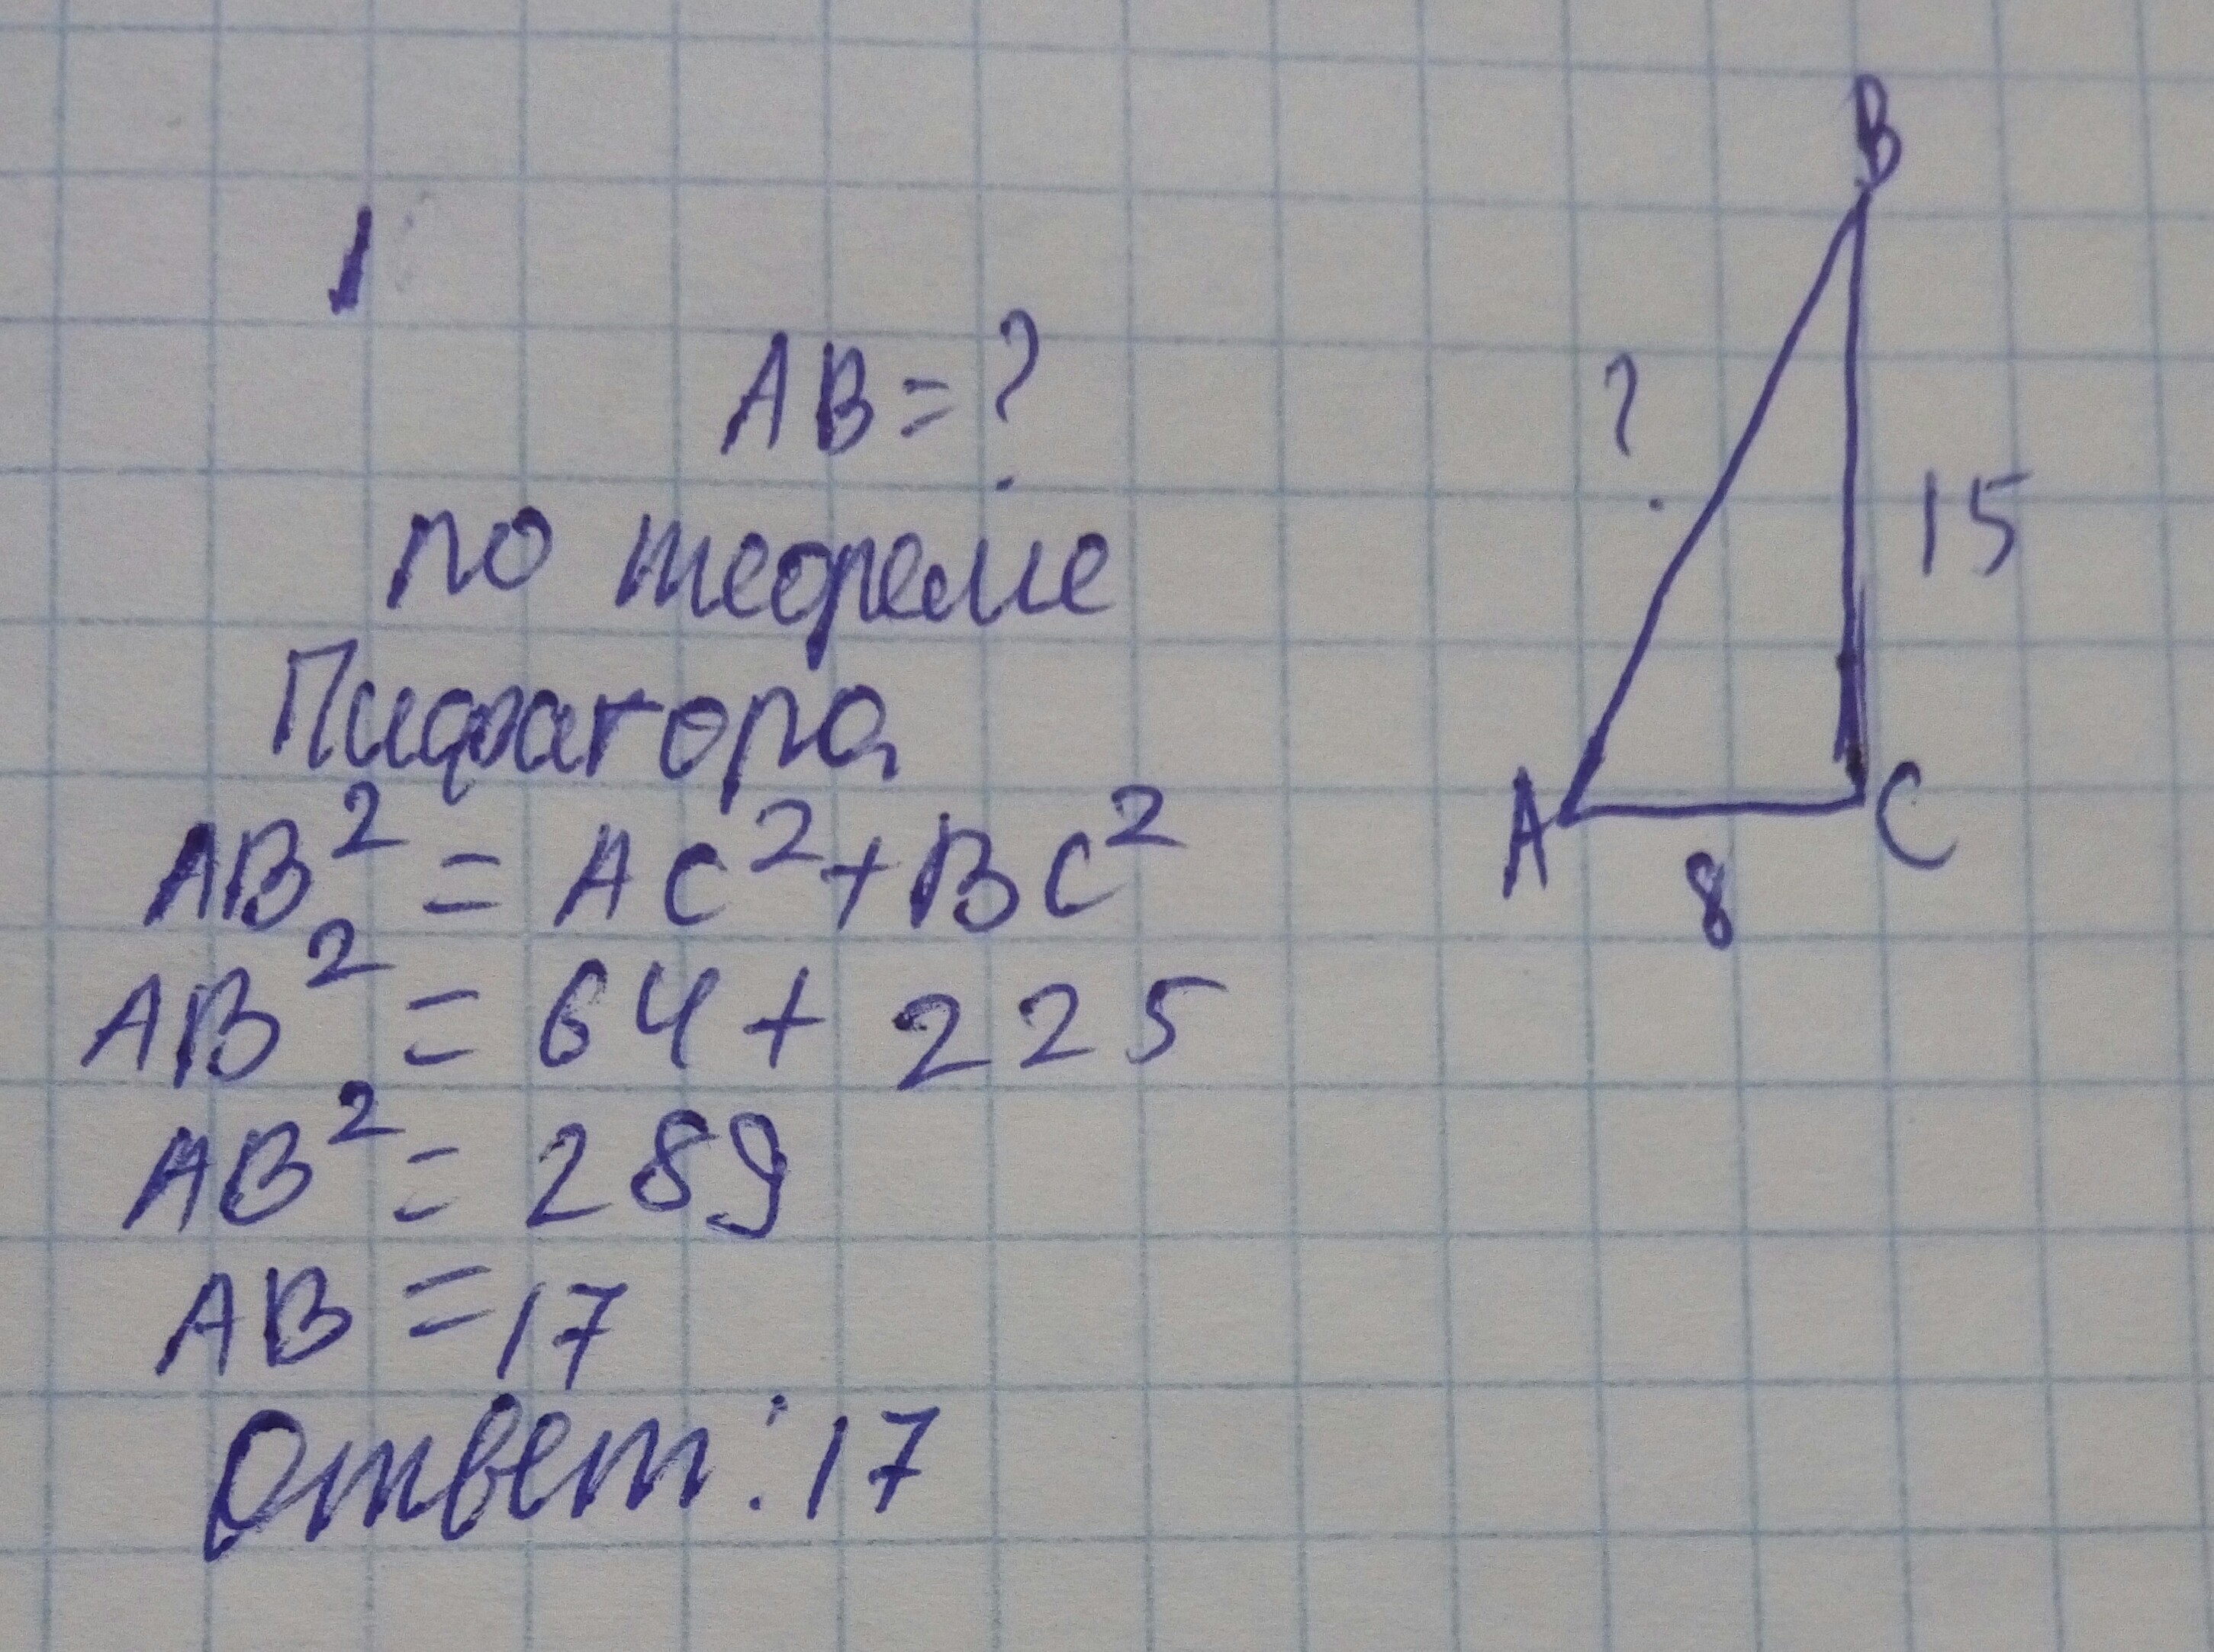 1
AB = ?
по теореме
Пифагора
AB² = AC² + BC²
AB² = 64 + 225
AB² = 289
AB = 17
Ответ: 17
B
?
15
A
C
8